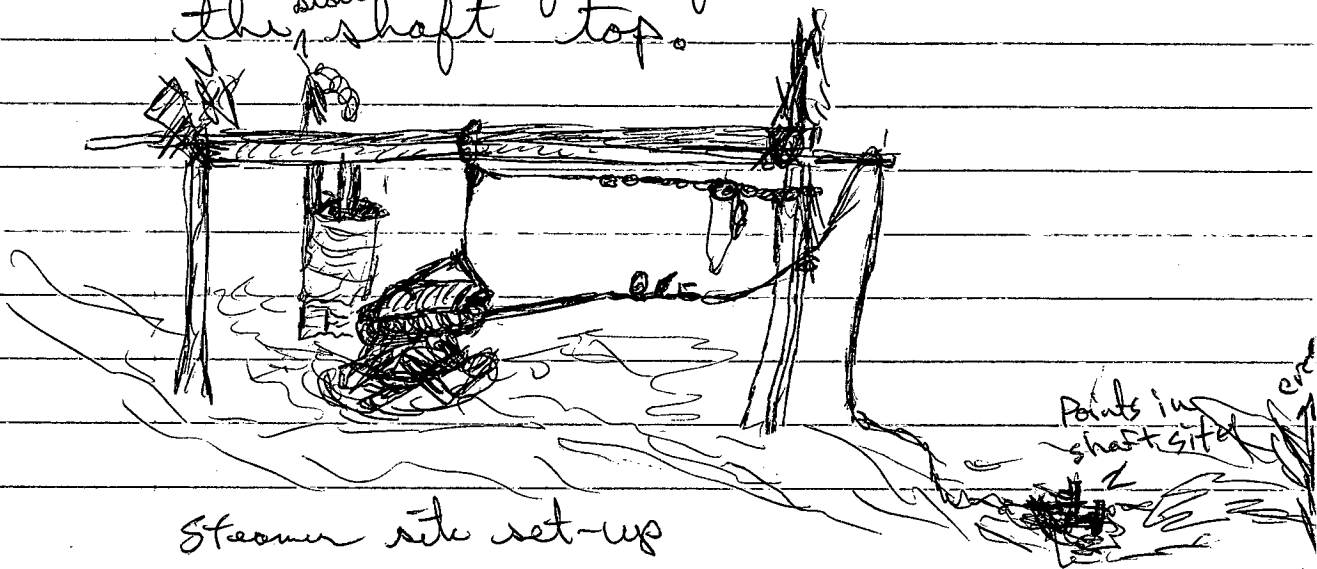 the shaft top.
Points in
shaft site
Steamer site set-up